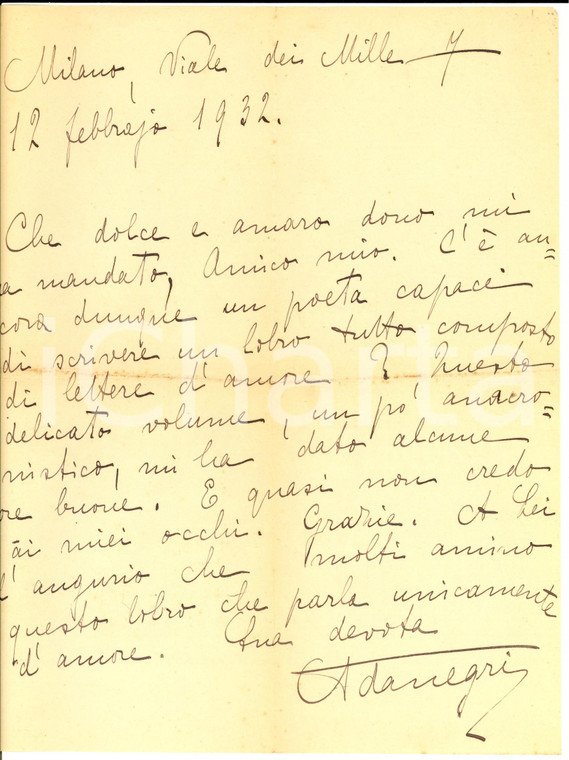 Milano, Viale dei Mille 7
12 febbrajo 1932.
Che dolce e amaro dono mi
a mandato, Amico mio. C'è an=
cora dunque un poeta capace
di scrivere un libro tutto composto
di lettere d'amore? Questo
delicato volume, un po' anacro=
nistico, mi ha dato alcune
ore buone. E quasi non credo
ai miei occhi. Grazie. A Lei
l'augurio che molti amino
questo libro che parla unicamente
d'amore. Sua devota
Adanegri
iCharta